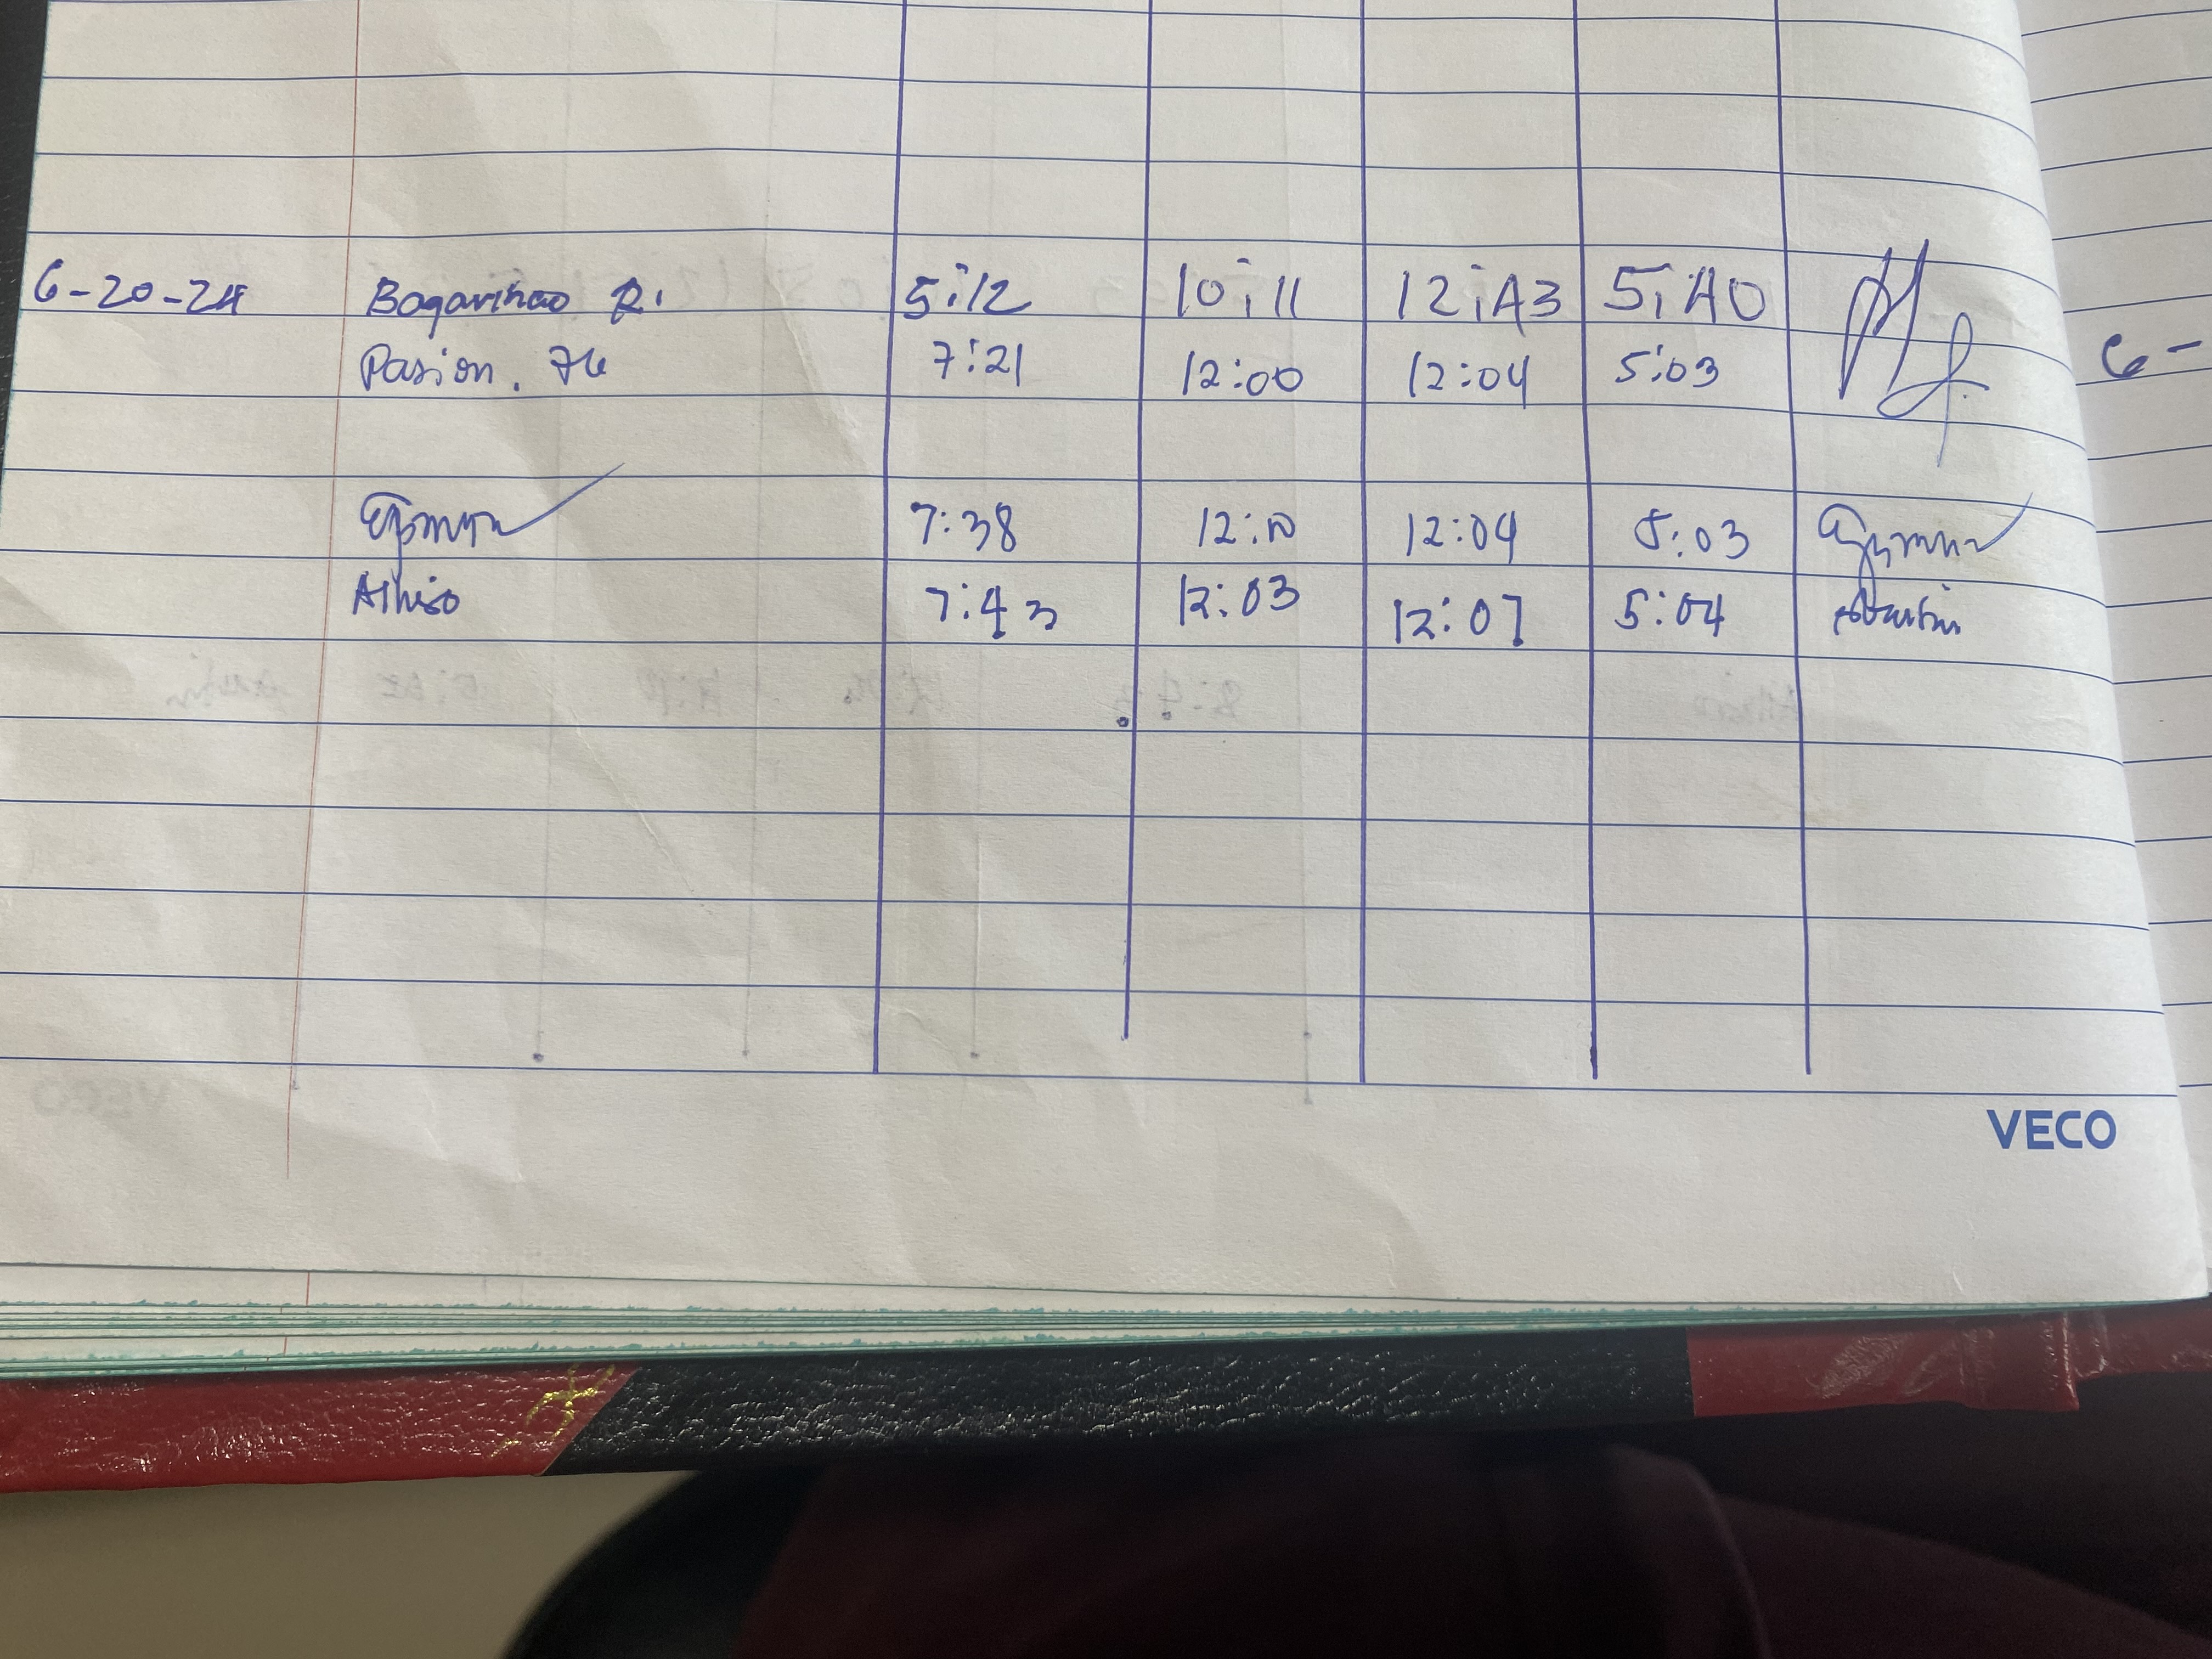 6-20-24 Bogarihao R. 5:12 10:11 12:43 5:40
Pasion. 7:21 12:00 12:04 5:03
6-
7:38 12:10 12:04 5:03
Alhiso 7:43 12:03 12:07 5:04
VECO